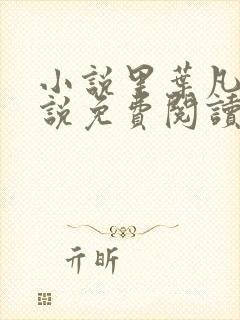 小說里葉凡
說免費閱讀
亓昕